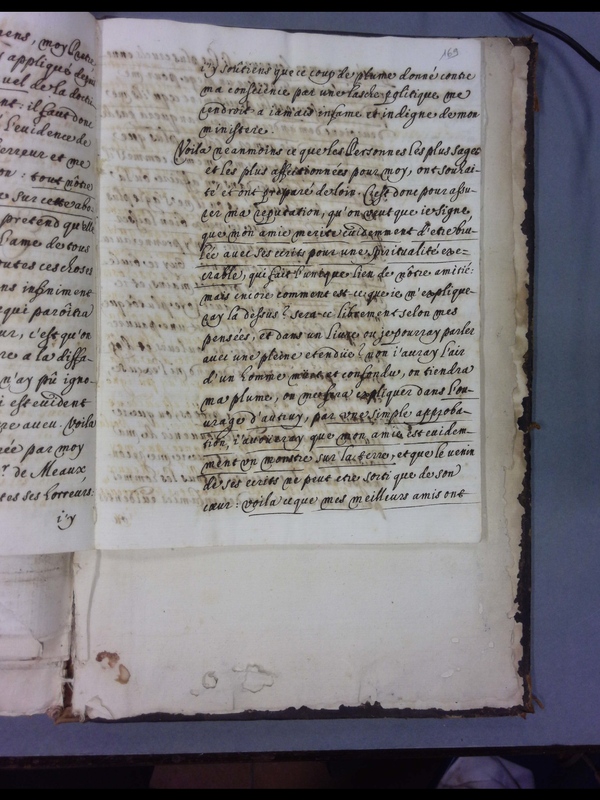 ens, moy Prestre
s appliqué depuis
uel de la doctri
nt: il faut donc
l'euidence de
erreur et me
on: tout nôtre
e sur cette abo
pretend qu'elle
l'ame de tous
outes ces choses
ns infiniment
qui paroitra
ur, c'est qu'on
re a la diffa
n'ay pû igno-
i est euident
re aueu. Voila
rée par moy
r. de Meaux
tes ses horreurs.
i'y
169
i'y soutiens que ce coup de plume donné contre
ma conscience par une lasche politique me
rendroit a iamais infame et indigne de mon
ministere.
Voila neanmoins ce que les Personnes les plus sages
et les plus affectionnées pour moy, ont souhai-
té et ont préparé de loin. C'est donc pour assu-
rer ma reputation, qu'on veut que ie signe,
que mon amie merite euidemment d'etre bru-
lée auec ses ecrits pour une spiritualité exe-
crable, qui fait l'unique lien de nôtre amitié:
mais encore comment est-ce que ie m'explique-
ray la dessus? sera-ce librement selon mes
pensées, et dans un Liure ou je pourray parler
auec une pleine etenduë? non i'auray l'air
d'un homme müet et confondu, on tiendra
ma plume, on me fera expliquer dans l'ou-
urage d'autruy, par une simple approba-
tion, i'auoueray que mon amie est euidem-
ment un monstre sur la terre, et que le venin
de ses ecrits ne peut etre sorti que de son
cœur: voila ce que mes meilleurs amis ont